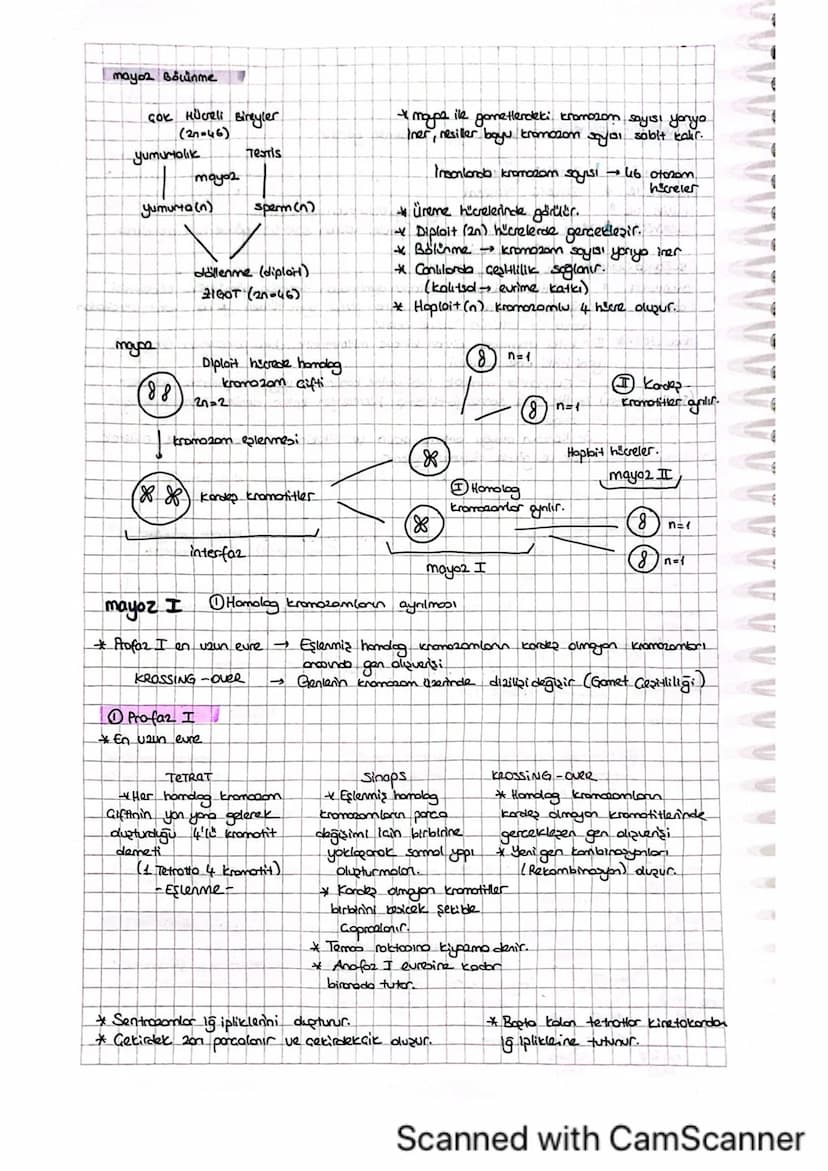 mayoz Bölünme
çok Hücreli Bireyler
(2n=46)
yumurtalık Testis
mayoz
yumurta(n) sperm(n)
döllenme (diploit)
ZİGOT (2n=46)
* mayoz ile gametlerdeki kromozom sayısı yarıya
iner, nesiller boyu kromozom sayısı sabit kalır.
İnsanlarda kromozom sayısı → 46 otozom
hücreler
* Üreme hücrelerinde görülür.
* Diploit (2n) hücrelerde gerçekleşir.
* Bölünme → kromozom sayısı yarıya iner
* Canlılarda çeşitlilik sağlanır.
(kalıtsal → evrime katkı)
* Haploit(n) kromozomlu 4 hücre oluşur.
mayoz
Diploit hücrede homolog
kromozom çifti
2n=2
kromozom eşlenmesi
kardeş kromotitler
interfaz
I Homolog
kromozomlar ayrılır.
mayoz I
n=1
n=1
II Kardeş
kromotitler ayrılır.
Haploit hücreler.
mayoz II
n=1
n=1
mayoz I ① Homolog kromozomların ayrılması
* Profaz I en uzun evre → Eşlenmiş homolog kromozomların kardeş olmayan kromozomları
arasında gen alışverişi
KROSSİNG-OVER → Genlerin kromozom üzerinde dizilişi değişir (Gamet Çeşitliliği)
① Profaz I
* En uzun evre
TETRAT
* Her homolog kromozom
çiftinin yan yana gelerek
oluşturduğu 4'lü kromotit
demeti
(1 Tetratta 4 kromotit)
- Eşlenme -
Sinaps
* Eşlenmiş homolog
kromozomların parça
değişimi için birbirine
yaklaşarak sarmal yapı
oluşturmaları.
* Kardeş olmayan kromotitler
birbirini kesicek şekilde
çaprazlanır.
* Temas noktasına kiyazma denir.
* Anafaz I evresine kadar
birarada tutar.
KROSSİNG-OVER
* Homolog kromozomların
kardeş olmayan kromotitlerinde
gerçekleşen gen alışverişi
* Yeni gen kombinasyonları
(Rekombinasyon) oluşur.
* Sentrozomlar iğ ipliklerini oluşturur.
* Çekirdek zarı parçalanır ve çekirdekçik oluşur.
* Başta kalan tetratlar kinetokordan
iğ ipliklerine tutunur.
Scanned with CamScanner